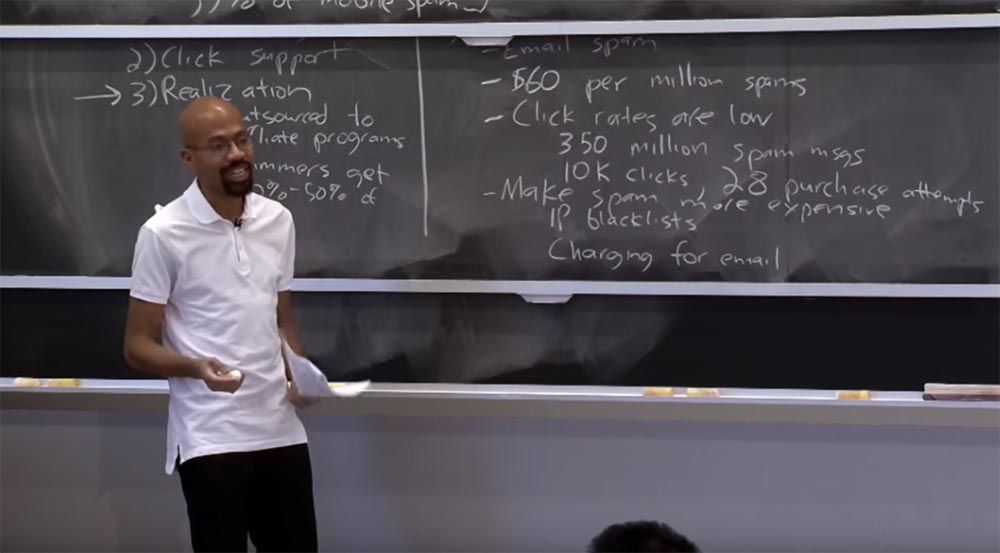 % of mobile spam
2) Click support
→ 3) Realization
to
programs
get
%-50% of
- Email spam
- $60 per million spams
- Click rates are low
350 million spam msgs
10K clicks, 28 purchase attempts
- Make spam more expensive
IP blacklists
Charging for email